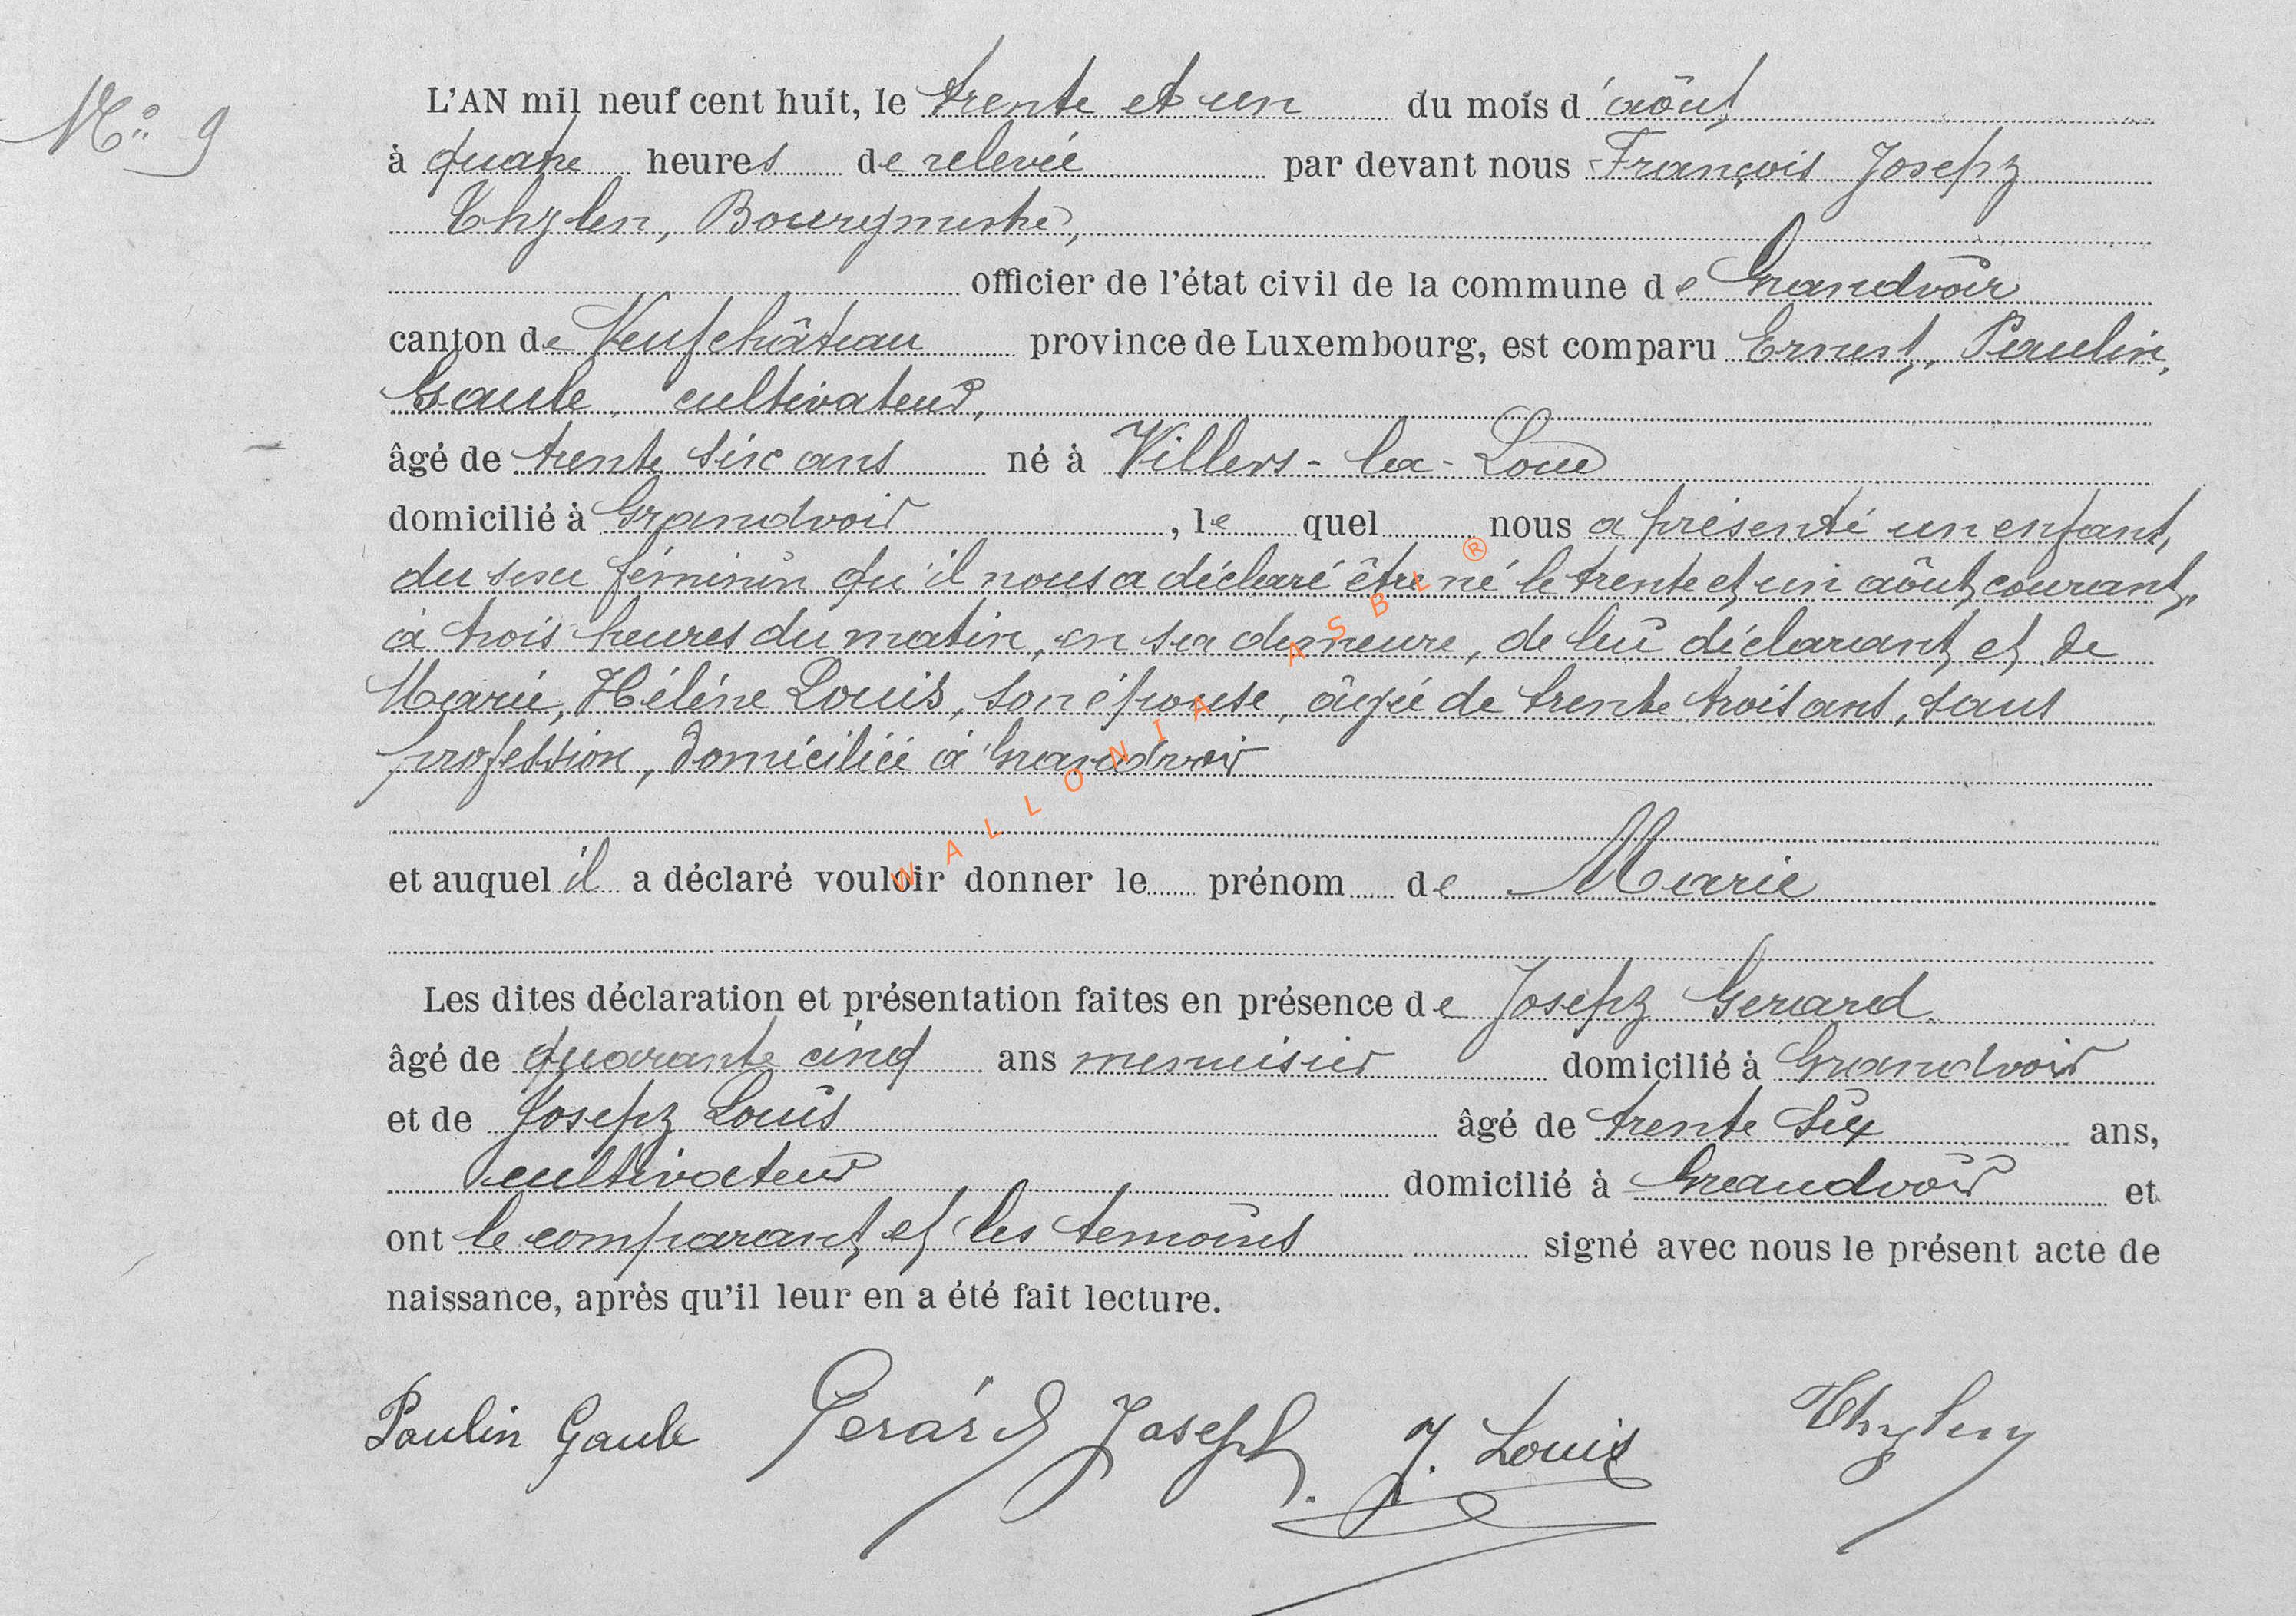 N° 9
L'AN mil neuf cent huit, le trente et un du mois d'août
à quatre heures de relevée par devant nous François Joseph
Thylen, Bourgmestre,
officier de l'état civil de la commune de Grandvoir
canton de Neufchâteau province de Luxembourg, est comparu Ernest, Paulin,
Gaule, cultivateur,
âgé de trente six ans né à Villers-la-Loue
domicilié à Grandvoir, lequel nous a présenté un enfant,
du sexe féminin qu'il nous a déclaré être né le trente et un août courant,
à trois heures du matin, en sa demeure, de lui déclarant et de
Marie, Hélène Louis, son épouse, âgée de trente trois ans, sans
profession, domiciliée à Grandvoir
et auquel il a déclaré vouloir donner le prénom de Marie
Les dites déclaration et présentation faites en présence de Joseph Gerard
âgé de quarante cinq ans menuisier domicilié à Grandvoir
et de Joseph Louis âgé de trente six ans,
cultivateur domicilié à Grandvoir et
ont le comparant et les temoins signé avec nous le présent acte de
naissance, après qu'il leur en a été fait lecture.
Paulin Gaule Gerárd Joseph. J. Louis Thylen
WALLONIA ASBL ®